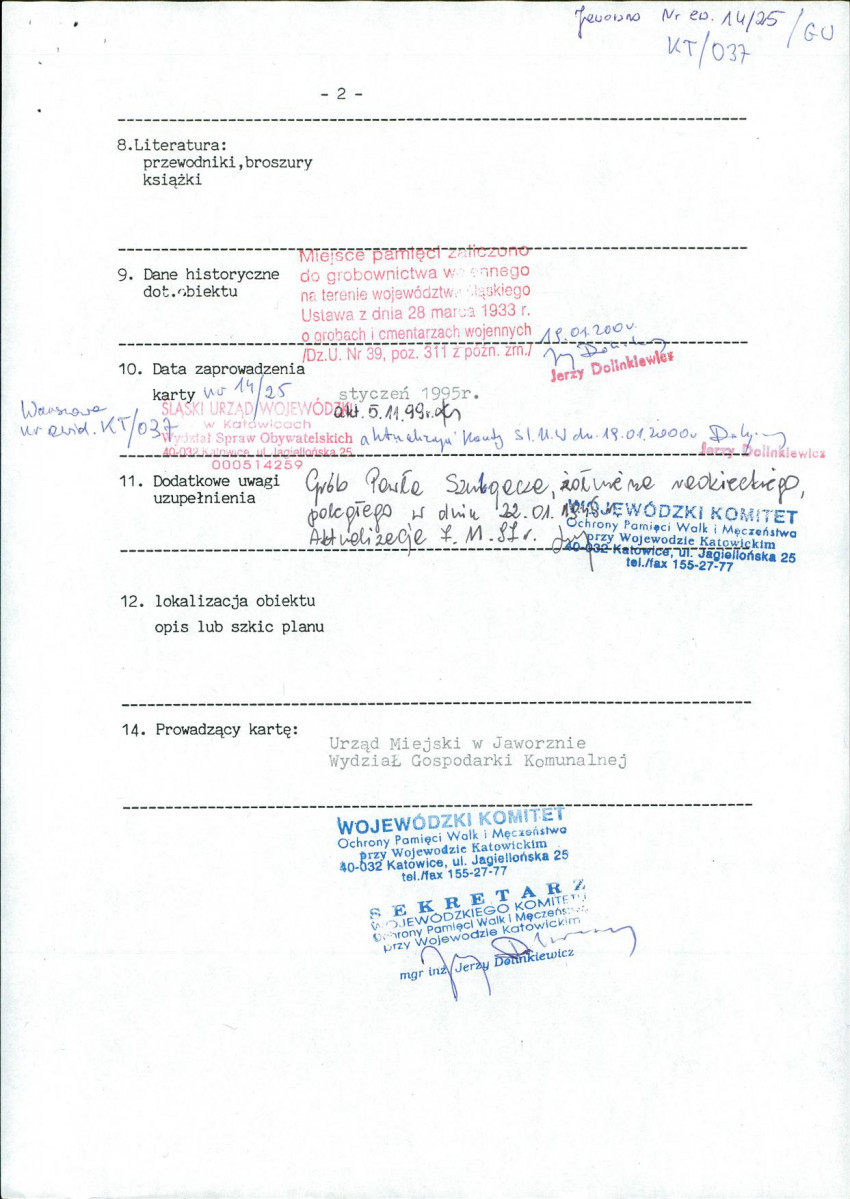 Jaworzno Nr ew. 14/25 /GU
KT/037
- 2 -
8.Literatura:
przewodniki,broszury
książki
9. Dane historyczne
dot.obiektu
Miejsce pamięci zaliczono
do grobownictwa wojennego
na terenie województwa śląskiego
Ustawa z dnia 28 marca 1933 r.
o grobach i cmentarzach wojennych
/Dz.U. Nr 39, poz. 311 z późn. zm./
19.01.2000r.
Jerzy Dolinkiewicz
10. Data zaprowadzenia
karty nr 14/25
styczeń 1995r.
akt. 5.11.99r.
Warszawa
nr ewid. KT/037
ŚLĄSKI URZĄD WOJEWÓDZKI
w Katowicach
Wydział Spraw Obywatelskich
40-032 Katowice, ul. Jagiellońska 25
000514259
aktualizacja karty Śl.U.W dn. 19.01.2000r
Jerzy Dolinkiewicz
11. Dodatkowe uwagi
uzupełnienia
Grób Pawła żołnierza radzieckiego,
poległego w dniu 22.01.1945 r.
Aktualizacja
WOJEWÓDZKI KOMITET
Ochrony Pamięci Walk i Męczeństwa
przy Wojewodzie Katowickim
40-032 Katowice, ul. Jagiellońska 25
tel./fax 155-27-77
12. lokalizacja obiektu
opis lub szkic planu
14. Prowadzący kartę:
Urząd Miejski w Jaworznie
Wydział Gospodarki Komunalnej
WOJEWÓDZKI KOMITET
Ochrony Pamięci Walk i Męczeństwa
przy Wojewodzie Katowickim
40-032 Katowice, ul. Jagiellońska 25
tel./fax 155-27-77
SEKRETARZ
WOJEWÓDZKIEGO KOMITETU
Ochrony Pamięci Walk i Męczeństwa
przy Wojewodzie Katowickim
mgr inż. Jerzy Dolinkiewicz